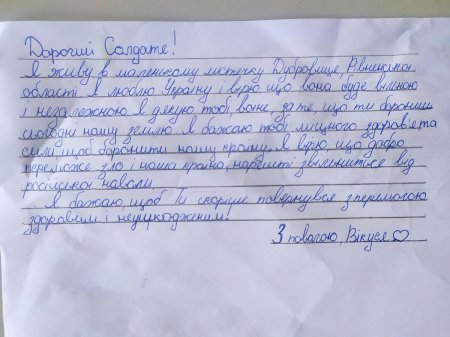 Дорогий Солдате!
Я живу в маленькому містечку Дубровиця Рівненської
області. Я люблю Україну і вірю, що вона буде вільною
і незалежною. Я дякую тобі, воїне, за те, що ти борониш
сьогодні нашу землю. Я бажаю тобі міцного здоров'я та
сили, щоб боронити нашу країну. Я вірю, що добро
переможе зло і наша країна, нарешті звільниться від
російської навали.
Я бажаю, щоб Ти скоріше повернувся з перемогою
здоровим і неушкодженим!
З повагою, Вікуся ♡